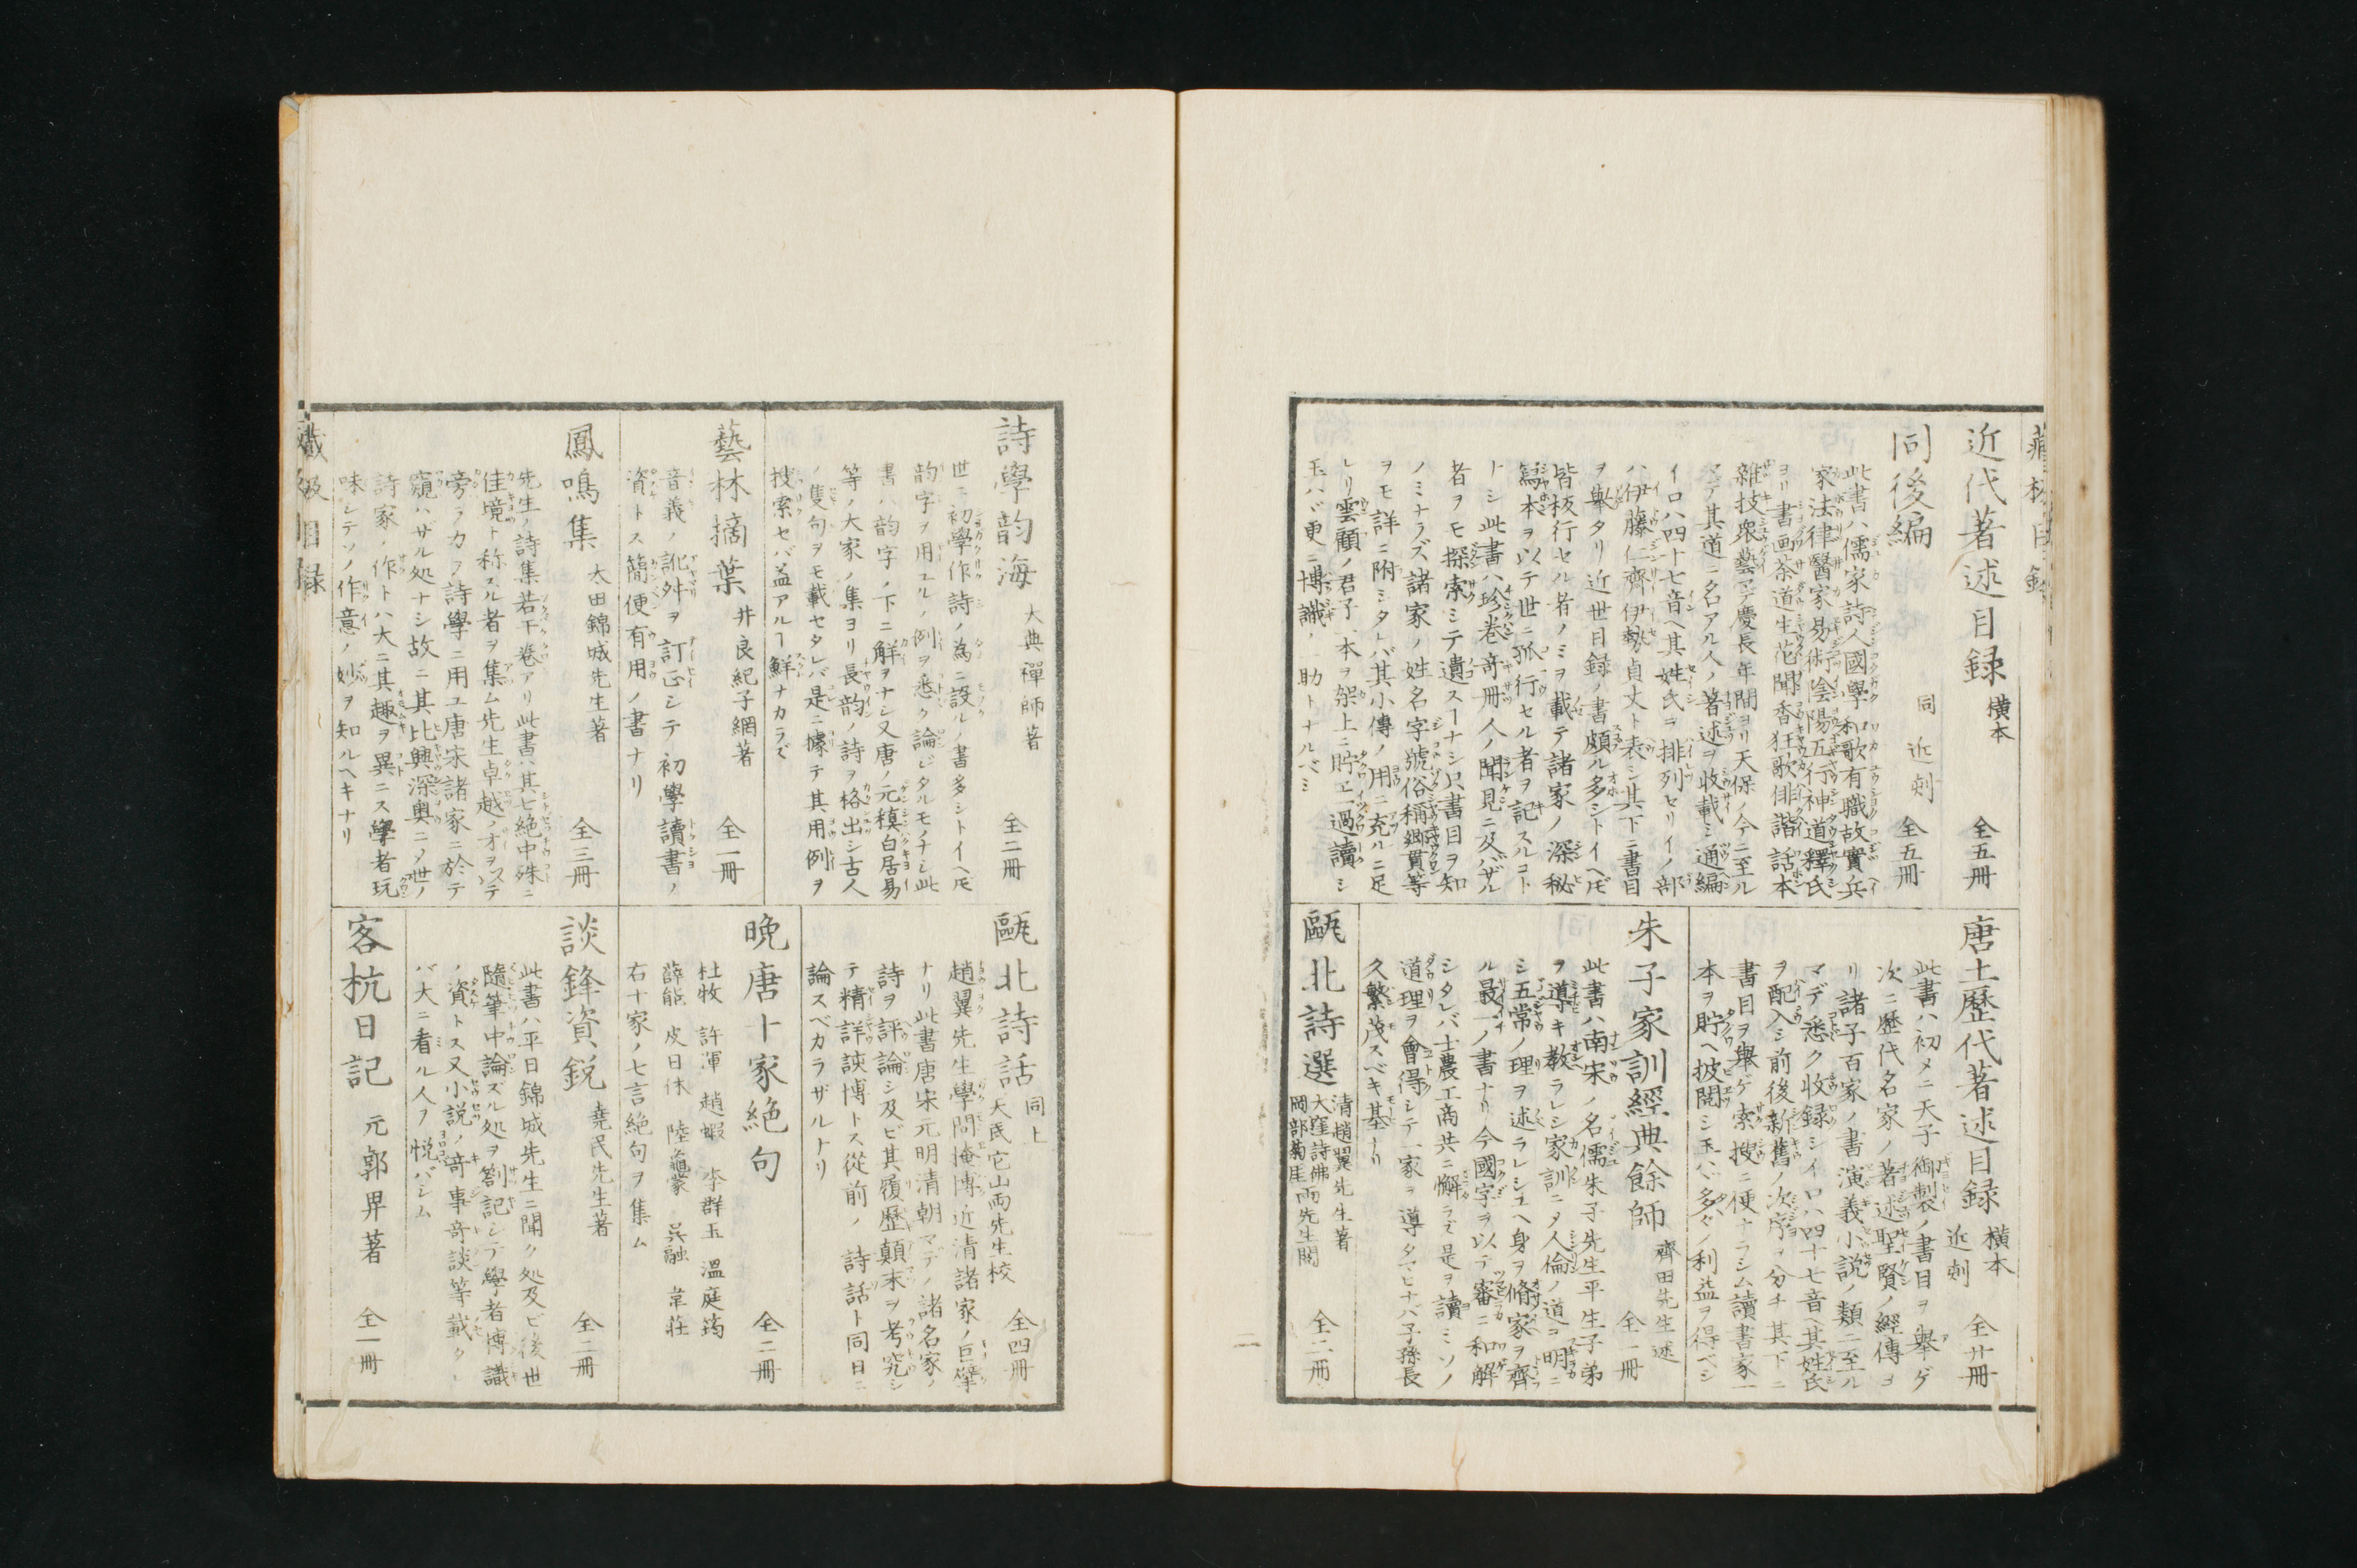 近代著述目録 横本 全五冊
同後編 同 近刻 全五冊
此書ハ儒家詩人國學和歌有職故實兵
家法律醫家易術陰陽五行神道釋氏
ヨリ書画茶道生花聞香狂歌俳諧話本
雜技衆藝マデ慶長年間ヨリ天保ノ今ニ至ル
マデ其道ニ名アル人ノ著述ヲ收載シ通編
イロハ四十七音ヘ其姓氏ヲ排列セリイノ部
ハ伊藤仁齊伊勢貞丈ト表シ其下ニ書目
ヲ擧タリ近世目録ノ書頗ル多シトイヘ𪜈
皆板行セル者ノミヲ載テ諸家ノ深秘
寫本ヲ以テ世ニ孤行セル者ヲ記スルコト
トシ此書ハ珍巻奇冊人ノ聞見ニ及バザル
者ヲモ探索シテ遺スヿナシ只書目ヲ知
ノミナラズ諸家ノ姓名字號俗稱郷貫等
ヲモ詳ニ附シタレバ其小傳ノ用ニ充ルニ足
レリ雲顧ノ君子一本ヲ架上ニ貯ヱ一過讀シ
玉ハヾ更ニ博識ノ助トナルベシ
唐土歴代著述目録 横本 近刻 全廿冊
此書ハ初メニ天子御製ノ書目ヲ擧ゲ
次ニ歴代名家ノ著述聖賢ノ經傳ヨ
リ諸子百家ノ書演義小説ノ類ニ至ル
マデ悉ク收録シイロハ四十七音ヘ其姓氏
ヲ配入シ前後新舊ノ次序ヲ分チ其下ニ
書目ヲ擧ゲ索搜ニ便ナラシム讀書家一
本ヲ貯ヘ披閲シ玉ハヾ多々ノ利益ヲ得ベシ
朱子家訓經典餘師 齊田先生述 全一冊
此書ハ南宋ノ名儒朱子先生平生子弟
ヲ導キ教ラレシ家訓ニメ人倫ノ道ヲ明ニ
シ五常ノ理ヲ述ラレシユヘ身ヲ脩家ヲ齊
ル最一ノ書ナリ今國字ヲ以テ審ニ和解
シタレバ士農工商共ニ懈ラズ是ヲ讀ミソノ
道理ヲ會得シテ一家ヲ導タマヒナバ子孫長
久繁茂スベキ基ナリ
甌北詩選 清趙翼先生著 大窪詩佛 岡部菊厓 両先生閲 全二冊
詩學韵海 大典禪師著 全二冊
世ニ初學作詩ノ為ニ設ルノ書多シトイヘ𪜈
韵字ヲ用ユルノ例ヲ悉ク論ジタルモノナシ此
書ハ韵字ノ下ニ解ヲナシ又唐ノ元稹白居易
等ノ大家ノ集ヨリ長韵ノ詩ヲ格出シ古人
ノ隻句ヲモ載セタレバ是ニ據テ其用例ヲ
搜索セバ益アルヿ鮮ナカラズ
藝林摘葉 井良紀子網著 全一冊
音義ノ訛舛ヲ訂正シテ初學讀書ノ
資トス簡便有用ノ書ナリ
鳳鳴集 太田錦城先生著 全三冊
先生ノ詩集若干卷アリ此書ハ其七絶中殊ニ
佳境ト称スル者ヲ集ム先生卓越ノ才ヲステ
旁ラカヲ詩學ニ用ユ唐宋諸家ニ於テ
窺ハザル処ナシ故ニ其比興深奥ニメ世ノ
詩家ノ作トハ大ニ其趣ヲ異ニス學者玩
味シテソノ作意ノ妙ヲ知ルヘキナリ
甌北詩話 同上 大民它山両先生校 全四冊
趙翼先生學問掩博近清諸家ノ巨擘
ナリ此書唐宋元明清朝マデノ諸名家ノ
詩ヲ評論シ及ビ其履歴顛末ヲ考究シ
テ精詳該博トス從前ノ詩話ト同日ニ
論スベカラザルナリ
晩唐十家絶句 全二冊
杜牧 許渾 趙嘏 李群玉 溫庭筠
薛能 皮日休 陸龜蒙 呉融 韋莊
右十家ノ七言絶句ヲ集ム
談鋒資鋭 堯民先生著 全二冊
此書ハ平日錦城先生ニ聞ク処及ビ後世
隨筆中論ズル処ヲ劄記シテ學者博識
ノ資トス又小説ノ奇事奇談等載タ
バ大ニ看ル人ヲ悦バシム
客杭日記 元郭畀著 全一冊